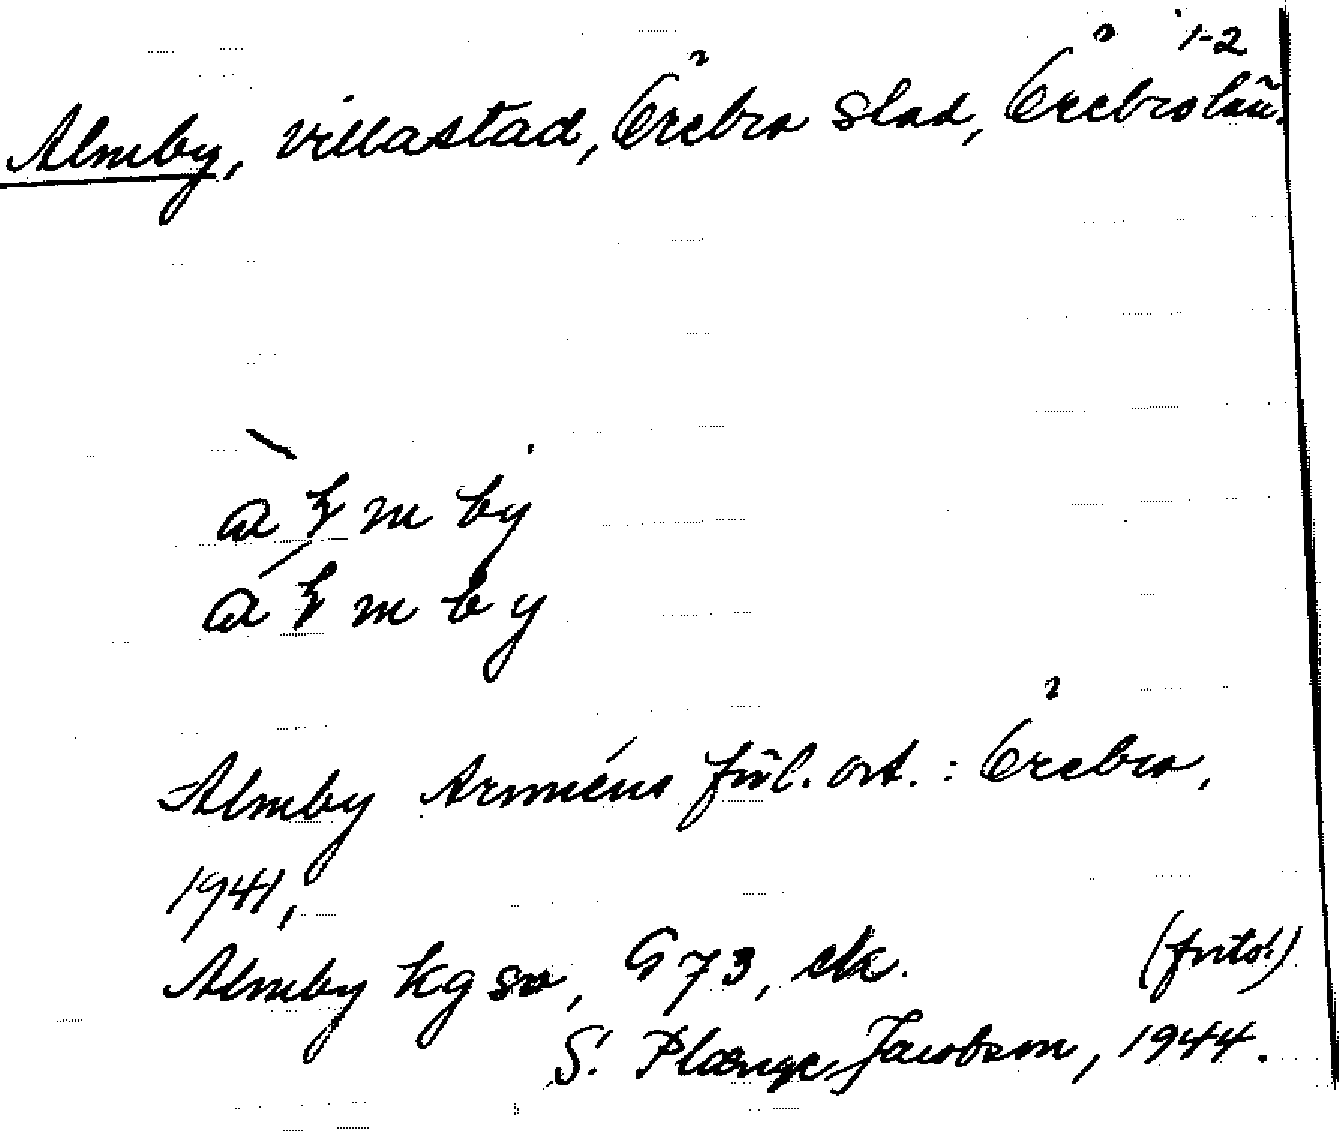 1-2
Almby, villastad, Örebro stad, Örebro län.
Almby Arméns förl. ort. : Örebro,
1941,
Almby kg sv, G 73, ek. (forts!)
S. Plænge Jacobson, 1944.